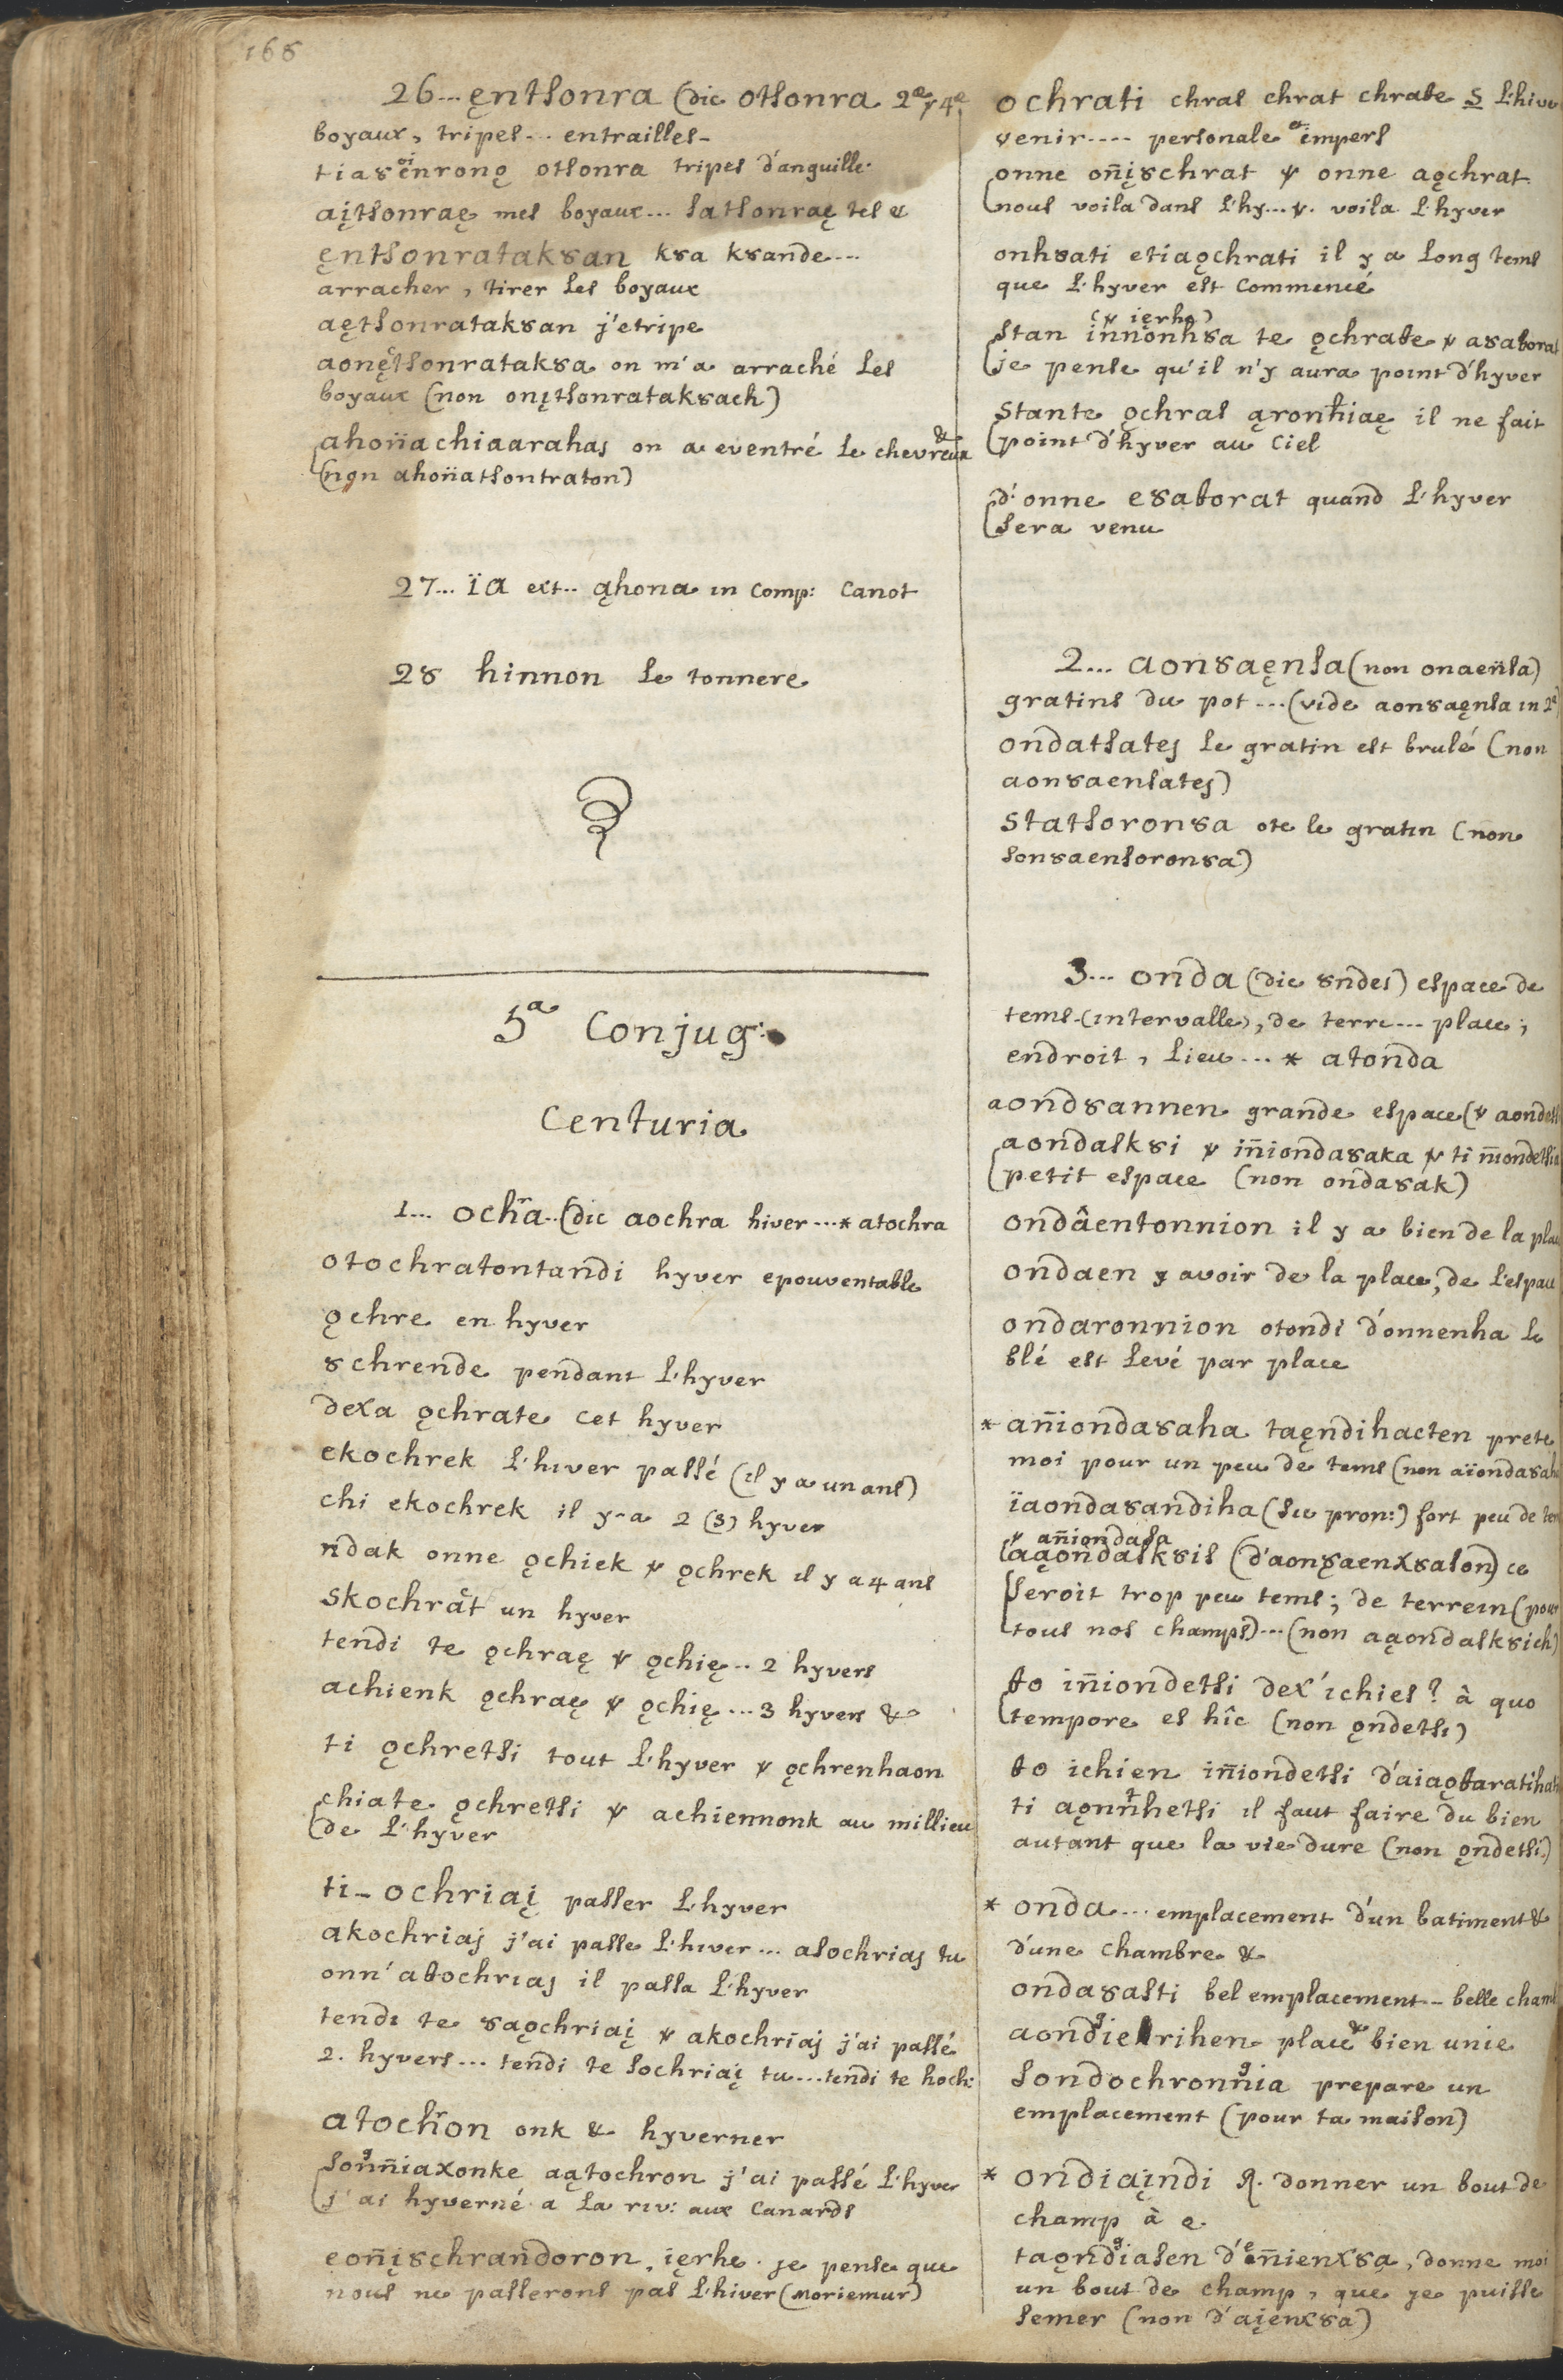 168
26... ęntsonra (dic otsonra 2ᵉ, 4ᵉ
boyaux, tripes... entrailles-
tiaȣeinronǫ otsonra tripes d'anguille.
aįtsonraę mes boyaux... satsonraę tes &
ęntsonrataksan kȣa kȣande...
arracher, tirer les boyaux
aętsonratakȣan j'etripe
aonętsonratakȣa on m'a arraché les
boyaux (non onįtsonratakȣach)
ahoñachiaarahas on a eventré le chevreux &
(non ahoñatsontraton)
27... ïa ext.. ąhona in comp: canot
28 hinnon le tonnere
5ᵃ Conjug:
Centuria
1... ochra.. (dic aochra hiver...* atochra
otochratontandi hyver epouventable
ǫchre en hyver
ȣchrende pendant l'hyver
dexa ǫchrate cet hyver
ekochrek l'hiver passé (il y a un ans)
chi ekochrek il y-a 2 (3) hyver
ndak onne ǫchiek ꝟ ǫchrek il y a 4 ans
skochrat un hyver
tendi te ǫchraę ꝟ ǫchię.. 2 hyvers
achienk ǫchraę ꝟ ǫchię... 3 hyvers &
ti ǫchretsi tout l'hyver ꝟ ǫchrenhaon
chiate ǫchretsi ꝟ achiennonk au millieu
de l'hyver
ti- ochriaį passer l'hyver
akochriaj j'ai passe l'hiver... asochriaj tu
onn'aȣochriaj il passa l'hyver
tendi te ȣaǫchriaį ꝟ akochriaj j'ai passé
2. hyvers... tendi te sochriaį tu... tendi te hoch:
atochron onk & hyverner
sonñiaxonke aątochron j'ai passé l'hyver
j'ai hyverné a la riv: aux canards
eoñįȣchrandoron, ięrhe. je pense que
nous ne passerons pas l'hiver (moriemur)
ochrati chras chrat chraȣe S l'hiver
venir.... personale et impers
onne oñįȣchrat ꝟ onne aǫchrat.
nous voila dans l'hy... ꝟ. voila l'hyver
onhȣati etiaǫchrati il y a long tems
que l'hyver est commencé
(ꝟ ięrhe)
stan innonhȣa te ǫchraȣe ꝟ
je pense qu'il n'y aura point d'hyver
stante ǫchras ąronhiaę il ne fait
point d'hyver au ciel
d'onne eȣaȣorat quand l'hyver
sera venu
2... aonȣaęnsa (non onaensa)
gratins du pot... (vide aonȣaęnsa in 2ᵃ)
ondatsatej le gratin est brulé (non
aonȣaensatej)
statsoronȣa ote le gratin (non
sonȣaensoronȣa)
3... onda (dic ȣndes) espace de
tems. (intervalle), de terre... place;
endroit, lieu... * atonda
aondȣannen grande espace (ꝟ
aondaskȣi ꝟ iñiondaȣaka ꝟ ti iñiondetsia
petit espace (non ondaȣak)
ondâentonnion il y a bien de la place
ondaen y avoir de la place, de l'espace
ondaronnion otondi d'onnenha le
blé est levé par place
* añiondaȣaha taęndihacten prete
moi pour un peu de tems (non
ïaondaȣandiha (seu pron:) fort peu de
ꝟ añiondasa
aąondaskȣis (d'aonȣaenxȣason) ce
seroit trop peu tems; de terrein (pour
tous nos champs)... (non aąondaskȣich)
ȣo iñiondetsi dex'ichies? à quo
tempore es hîc (non ǫndetsi)
ȣo ichien iñiondetsi
ti aǫnnhetsi il faut faire du bien
autant que la vie dure (non ǫndetsi.)
* onda... emplacement d'un batiment &
d'une chambre &
ondaȣasti bel emplacement - belle
aondierihen place & bien unie
sondochronnia prepare un
emplacement (pour ta maison)
* ondiaįndi R. donner un bout de
champ à q.
taǫndiasen d'eñienxȣa, donne moi
un bout de champ, que je puisse
semer (non d'aįenxȣa)